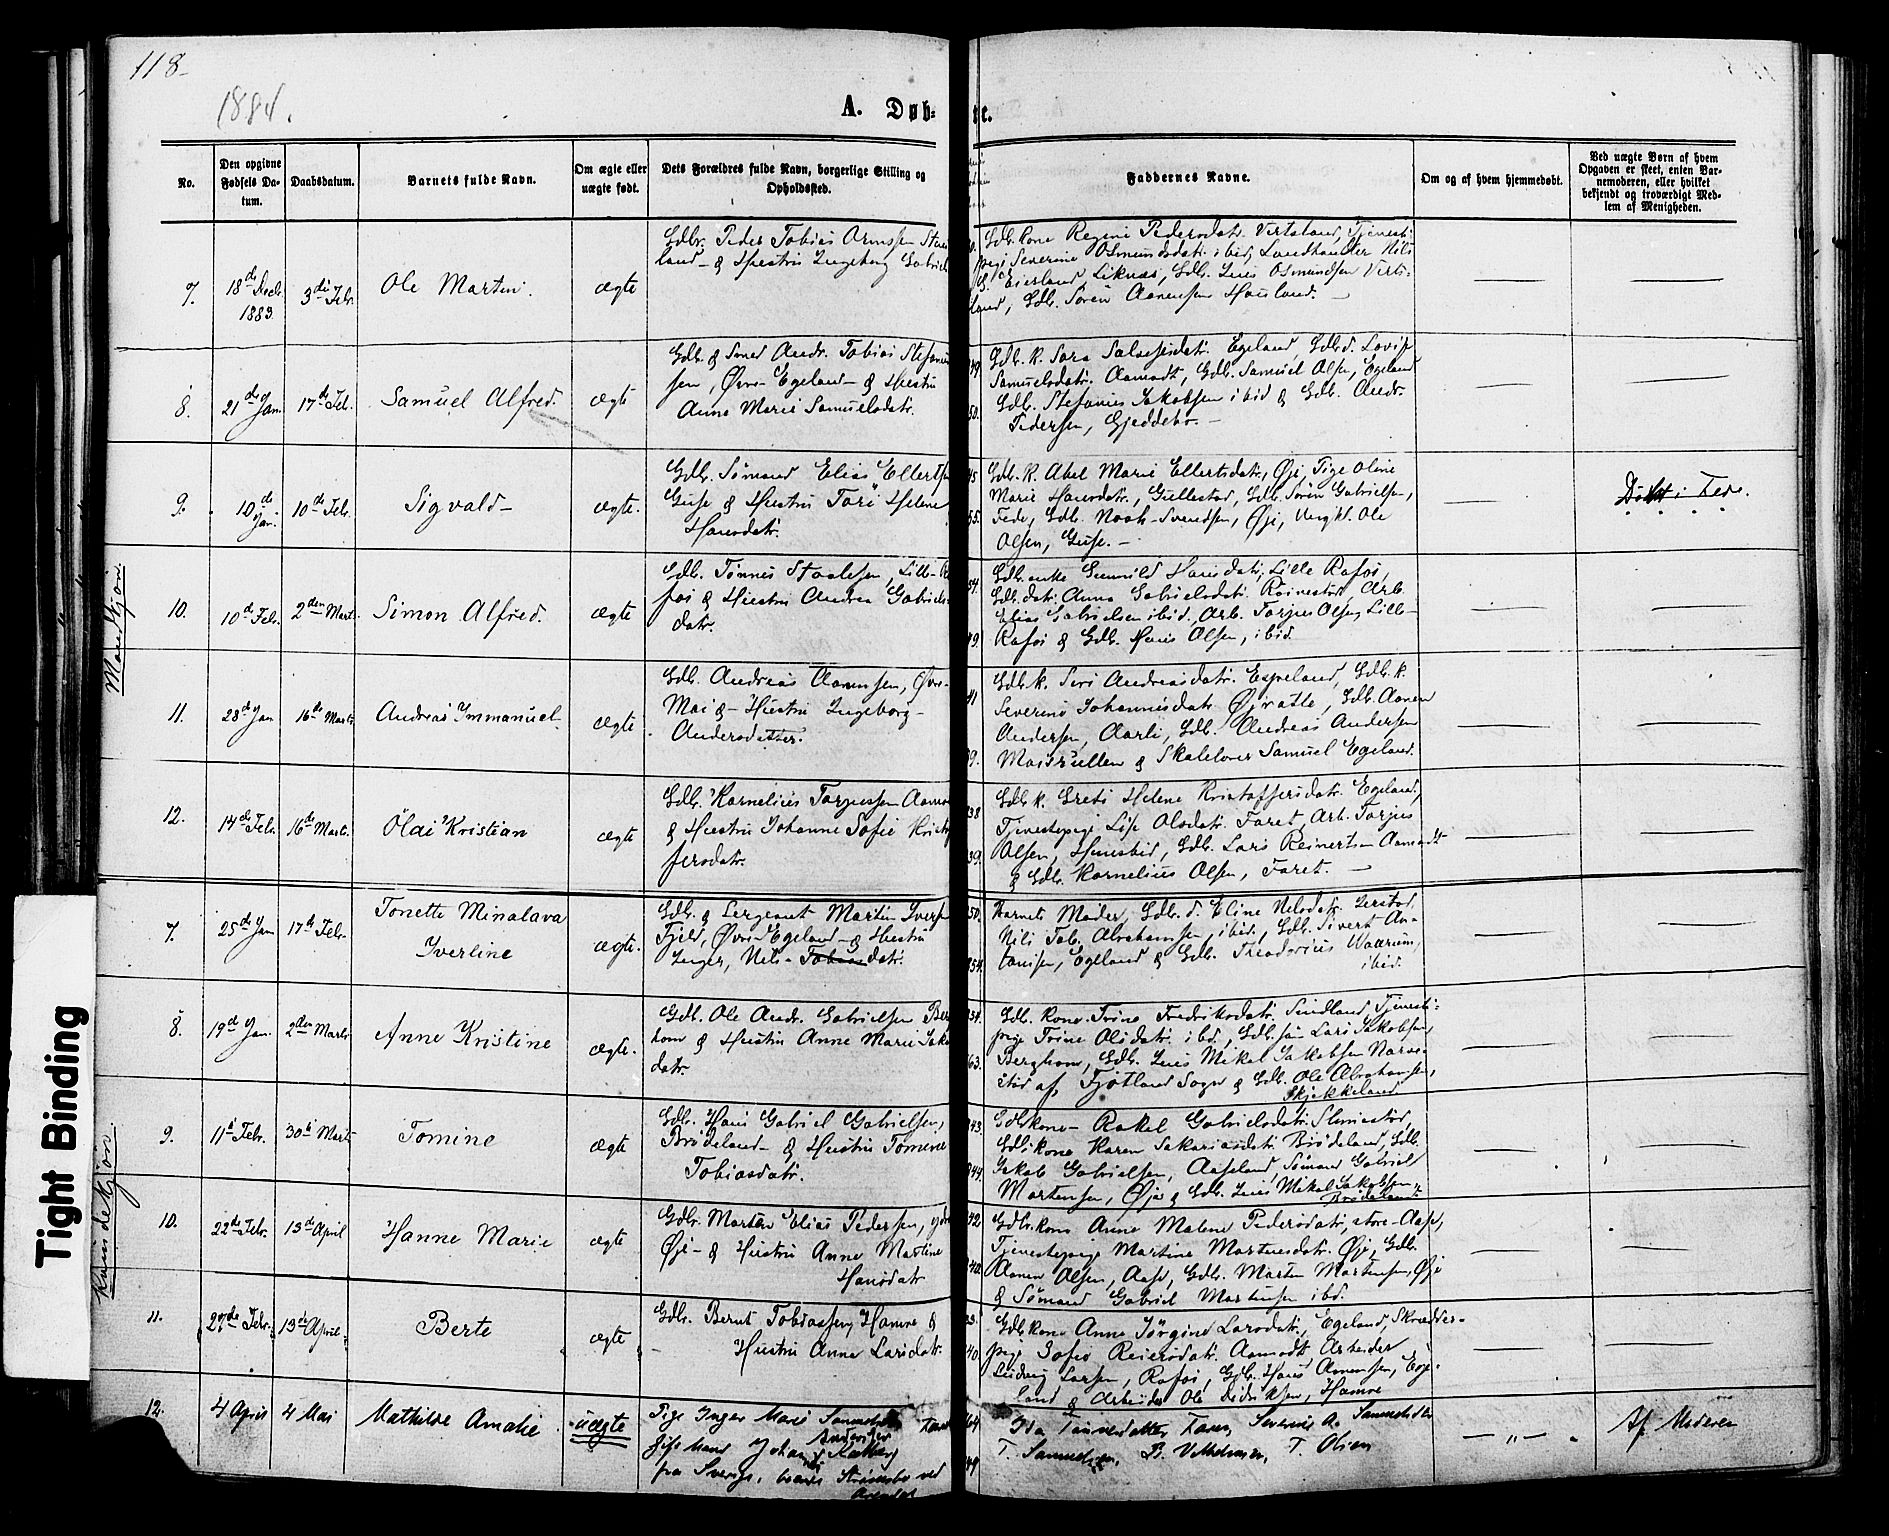 118
1884.
A. Døb=
te.
No.
Den opgivne Fødsels Datum.
Daabsdatum.
Barnets fulde Navn.
Om ægte eller uægte født.
Dets Forældres fulde Navn, borgerlige Stilling og Opholdssted.
Faddernes Navne.
Om og af hvem hjemmedøbt.
Ved uægte Børn af hvem Opgaven er skeet, enten Barnemoderen, eller hvilket bekjendt og troværdigt Medlem af Menigheden.
Mandkjøn.
7.
18de Decb. 1883.
3die Febr.
Ole Martin.
ægte
Gdbr. Peder Tobias Ormssen
land & Hustru Ingeborg Gabriels
Gdb. kone Regine Pedersdatr. Virtsland, Tjeneste-
pige Severine Osmundsdatr. ibid, Landhandler Nils
Eierland Liknæs, Gdb. Osmundsen Virts-
land, Gdb. Søren Aanensen Hausland.
8.
21de Jan.
17de Feb.
Samuel Alfred.
ægte
Gdb. & Smed Andr. Tobias Stefanus-
sen, Øvre Egeland & Hustru
Anne Marie Samuelsdatr.
49
50.
Gdb. k. Sara Salvesdatr. Egeland, Gdb. d. Lovise
Samuelsdatr. Aamodt, Gdb. Samuel Olsen, Egeland
Gdb. Stefanus Jakobsen ibid & Gdb. Andr.
Pedersen, Gjeddebo.
9.
10de Jan.
10de Febr.
Sigvald
ægte.
Gdb. Sømand Elias Ellertsen
Guse & Hustru Tore Helene
Hansdatr.
45
55.
Gdb. k. Abel Marie Ellertsdatr., Øje, Pige Oline
Marie Hansdatr., Gullestad, Gdb. Søren Gabrielsen,
Fede, Gdb. Noah Svendsen, Øje, Ungk. Ole
Olsen, Guse.
Døbt i Fede.
10.
10de Febr.
2den Marts
Simon Alfred.
ægte
Gdb. Tønnes Staalesen, Lille Ra
føs & Hustru Andrea Gabriels-
datr.
54.
49.
Gdb. enke Gunvild Hansdatr., Lille Rafos,
Gdb. datr. Anna Gabrielsdatr. Røinestad, Arb.
Elias Gabrielsen ibid., Arb. Torjus Olsen, Lille
Rafos & Gdb. Hans Olsen, ibid.
11.
28de Jan
16de Marts
Andreas Immanuel
ægte.
Gdb. Andreas Aanensen, Øvre
Moi & Hustru Ingeborg
Andersdatter.
41
39.
Gdb. k. Siri Andreasdatr. Espeland, Gdb. k.
Severine Johannesdatr. Øjvatle, Gdb. Aanen
Andersen, Aarli, Gdb. Andreas Andersen
& Skolelærer Samuel Egeland.
12.
14de Febr.
16de Marts.
Olai Kristian
ægte
Gdb. Kornelius Torjussen Aamo
& Hustru Johanne Sofie Kristof
fersdatr.
38
39.
Gdb. k. Grete Helene Kristoffersdatr. Egeland,
Tjenestepige Lise Olsdatr. Faret, Arb. Torjus
Olsen, Gdb. Lars Reinertsen Aamodt
& Gdb. Kornelius Olsen, Faret.
Kvindekjøn.
7.
25de Jan
17de Febr.
Tonette Minalava
Iverline
ægte.
Gdb. & Sergeant Martin Iversen
Fjeld, Øvre Egeland & Hustru
Inger, Nils-Tobiasdatr.
50.
54.
Barnets Moder, Gdb. d. Eline Nelsdatr. Lerstad,
Nili Tob. Abrahamsen, ibid., Gdb. Sivert An-
tonisen, Egeland & Gdb. Theodorius Waarum,
ibid.
8.
19de Jan.
2den Marts
Anne Kristine
ægte.
Gdb. Ole Andr. Gabrielsen Berg
hom & Hustru Anne Marie Jakobs
datr.
54.
63.
Gdb. kone Trine Fredriksdatr. Sindland, Tjeneste-
pige Trine Olsdatr. ibd., Gdb. søn Lars Jakobsen,
Berghom, Gdb. Mikal Jakobsen Narve-
stad af Fjotland Sogn & Gdb. Ole Abrahamsen,
Skjekkeland
9.
11te Febr.
30te Marts
Tomine
ægte
Gdb. Hans Gabriel Gabrielsen,
Brødeland & Hustru Tomine
Tobiasdatr.
43.
44.
Gdb kone Rakel Gabrielsdatr.
Gdb. kone Karen Sakariasdatr. Brødeland, Gdb.
Jakob Gabrielsen, Aaseland, Sømand Gabriel
Martensen, Øje & Gdb. Mikal Jakobsen
Brødeland
10.
22de Febr.
13de April
Hanne Marie
ægte
Gdb. Morten Elias Pedersen, ydre
Øje & Hustru Anne Martine
Hansdatr
42
40.
Gdb. kone Anne Malene Pedersdatr., store Aase,
Tjenestepige Martine Martinsdatr. Øje, Gdb.
Aanen Olsen, Aase, Gdb. Morten Martensen, Øje
& Sømand Gabriel Martensen ibd.
11.
27de Febr.
13de April
Berte
ægte
Gdb. Bernt Tobiassen, Hamre &
Hustru Anne Larsdatr.
40
Gdb. kone Anne Jørgine Larsdatr., Egeland, Skrædder-
pige Sofie Reiersdatr. Aamodt, Arbeider
Ludvig Larsen, Rafos, Gdb. Hans Aanensen, Ege-
land & Arbeider Ole Didriksen, Hamre
12.
4 April
4 Mai
Mathilde Amalie
uægte
Pige Inger Marie Samuelsdtr
gift Mand Johan Andersen
fra Sverige, boende Strømsbo ved
Arendal
64
49
Ida Tønnesdatter, Karen Severine A. Samuelsdtr
T. Samuelsen, B. Vilhelmsen, T. Olsen
— „ —
Af Moderen
Tight Binding